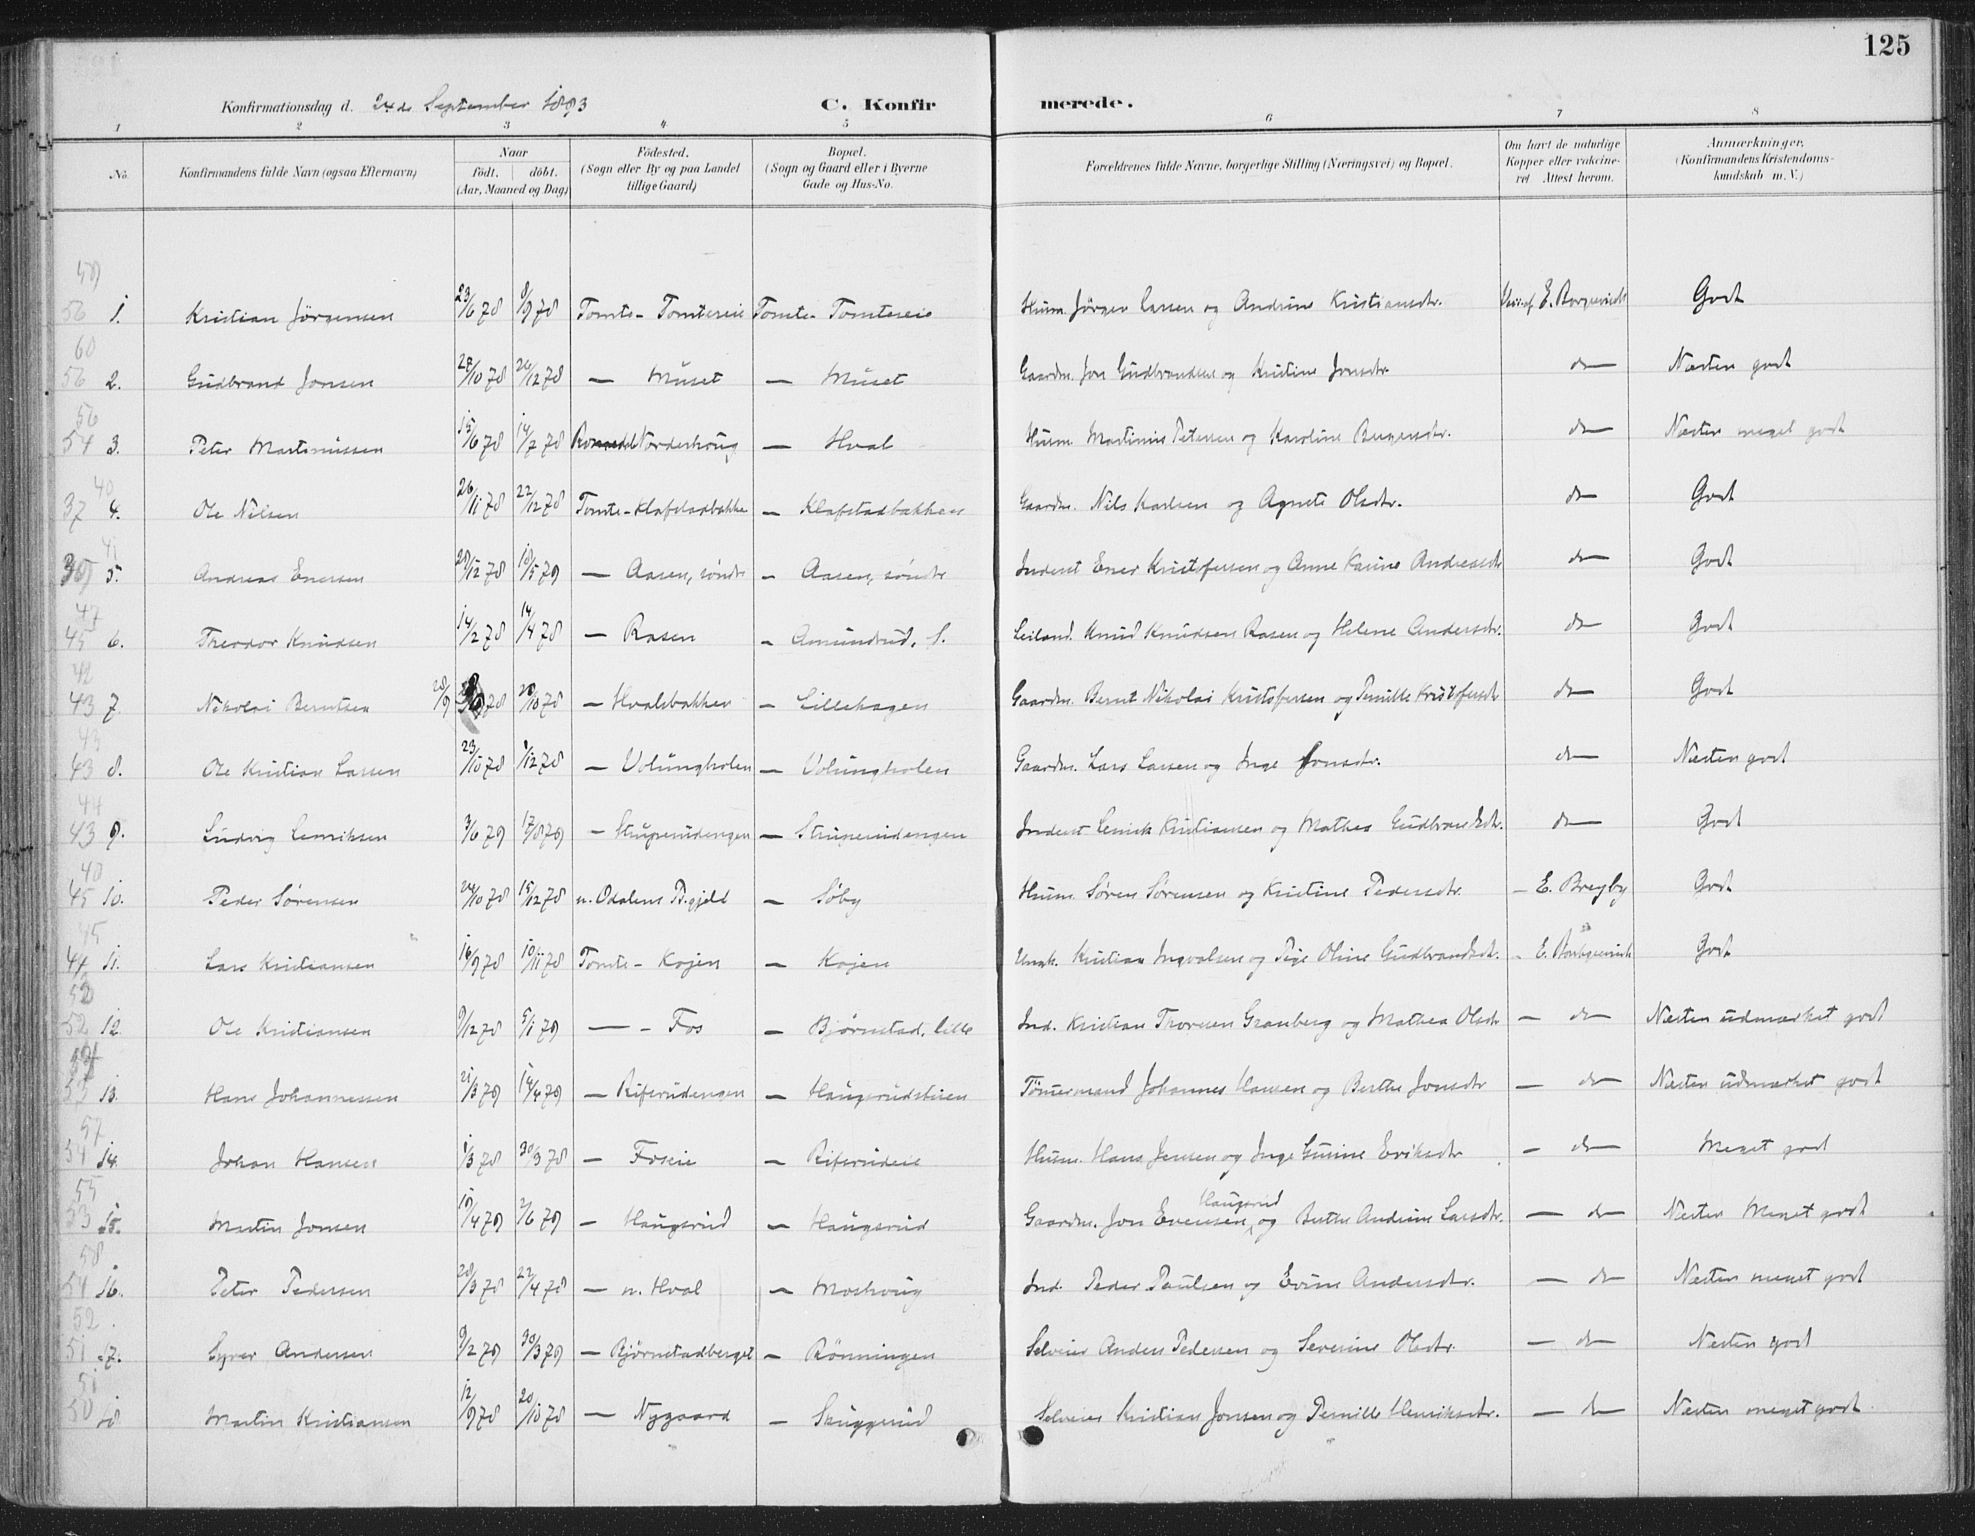 125
Konfirmationsdag d. 24de September 1893 C. Konfirmerede.
1 2 3 4 5 6 7 8
No. Konfirmandens fulde Navn (ogsaa Efternavn) Naar födt. döbt. (Aar, Maaned og Dag) Födested. (Sogn eller By og paa Landet tillige Gaard) Bopæl. (Sogn og Gaard eller i Byerne Gade og Hus-No. Forældrenes fulde Navne, borgerlige Stilling (Næringsvei) og Bopæl. Om havt de naturlige Kopper eller vaccineret Attest herom. Anmærkninger. (Konfirmandens Kristendomskundskab m.V.)
59
56 1. Kristian Jörgensen 23/6 78 8/9 78 Tomte - Tomtereie Tomte - Tomtereie Husm. Jörgen Larsen og Andrine Kristiansdtr. E. Borgersrud Godt
60
56 2. Gudbrand Jonsen 28/10 78 26/12 78 — Muset — Muset Gaardm. Jon Gudbrandsen og Kristine Jonsdtr. do — Næsten godt
56
54 3. Peter Martinussen 15/6 78 14/7 78 Romedal Norderhoug — Hval Husm. Martinus Petersen og Karoline Bergersdtr. do — Næsten meget godt
40
37 4. Ole Nilsen 26/11 78 22/12 78 Tomte - Klafstadbakke — Klafstadbakken Gaardm. Nils Karlsen og Agnete Olsdtr. do — Godt
41
39 5. Andreas Enersen 29/12 78 18/5 79 — Aasen, söndr — Aasen, söndr Inderst Ener Kristofersen og Anne Karine Andreasdtr do — Godt
47
45 6. Theodor Knudsen 14/2 78 14/4 78 — Rasen — Amundrud, s. Leiland. Knud Knudsen Rasen og Helene Andersdtr. do — Godt
42
43 7. Nikolai Berntsen 28/9 78 20/10 78 — Hvalsbakken — Lillehagen Gaardm. Bernt Nikolai Kristofersen og Pernille Kristofersdtr do — Godt
43
43 8. Ole Kristian Larsen 23/10 78 1/12 78 — Volungholen — Volungholen Gaardm. Lars Larsen og Inge Jonsdtr. do — Næsten godt
44
43 9. Ludvig Lenriksen 3/6 79 17/8 79 — Struperudengen — Struperudengen Inderst Lenrik Kristiansen og Mathea Gudbrandsdtr. do — Godt
48
45 10. Peder Sørensen 24/10 78 15/12 78 n. Odalens P.gjeld — Søby Husm. Søren Sørensen og Kristine Pedersdtr. — E. Bregby Godt
45
44 11. Lars Kristiansen 16/9 78 10/11 78 Tomte - Kojen — Kojen Ungk. Kristian Ingvalsen og Pige Oline Gudbrandsdtr. - E. Borkgrevink Godt
52
52 12. Ole Kristiansen 9/12 78 5/1 79 — - Fos — Bjørnstad, lille Ind. Kristian Thoresen Granberg og Mathea Olsdtr — do — Næsten udmærket godt
54
53 13. Hans Johannessen 21/3 79 14/4 79 — Riferudengen — Haugsrudstuen Tömermand Johannes Hansen og Berthe Jonsdtr — do — Næsten udmærket godt
57
54 14. Johan Hansen 1/3 78 30/3 78 — Foseie — Riferudeie Husm. Hans Jensen og Inge Gurine Eriksdtr — do — Meget godt
55
53 15. Martin Jonsen 10/4 79 2/6 79 — Haugsrud — Haugsrud Gaardm. Jon Evensen Haugsrud, og Berthe Andrine Larsdtr. — do — Næsten Meget godt
58
54 16. Peter Pedersen 28/3 78 22/4 78 — n. Hval — Moshoug Ind. Peder Paulsen og Evine Andersdtr. — do — Næsten meget godt
52.
51 17. Syver Andersen 9/2 79 30/3 79 — Bjørnstadberget — Rönningen Selveier Anders Pedersen og Severine Olsdtr. — do — Næsten godt
51
50 18 Martin Kristiansen 12/9 78 20/10 78 — Nygaard — Skuggerud Selveier Kristian Jonsen og Pernille Henriksdtr. — do — Næsten meget godt